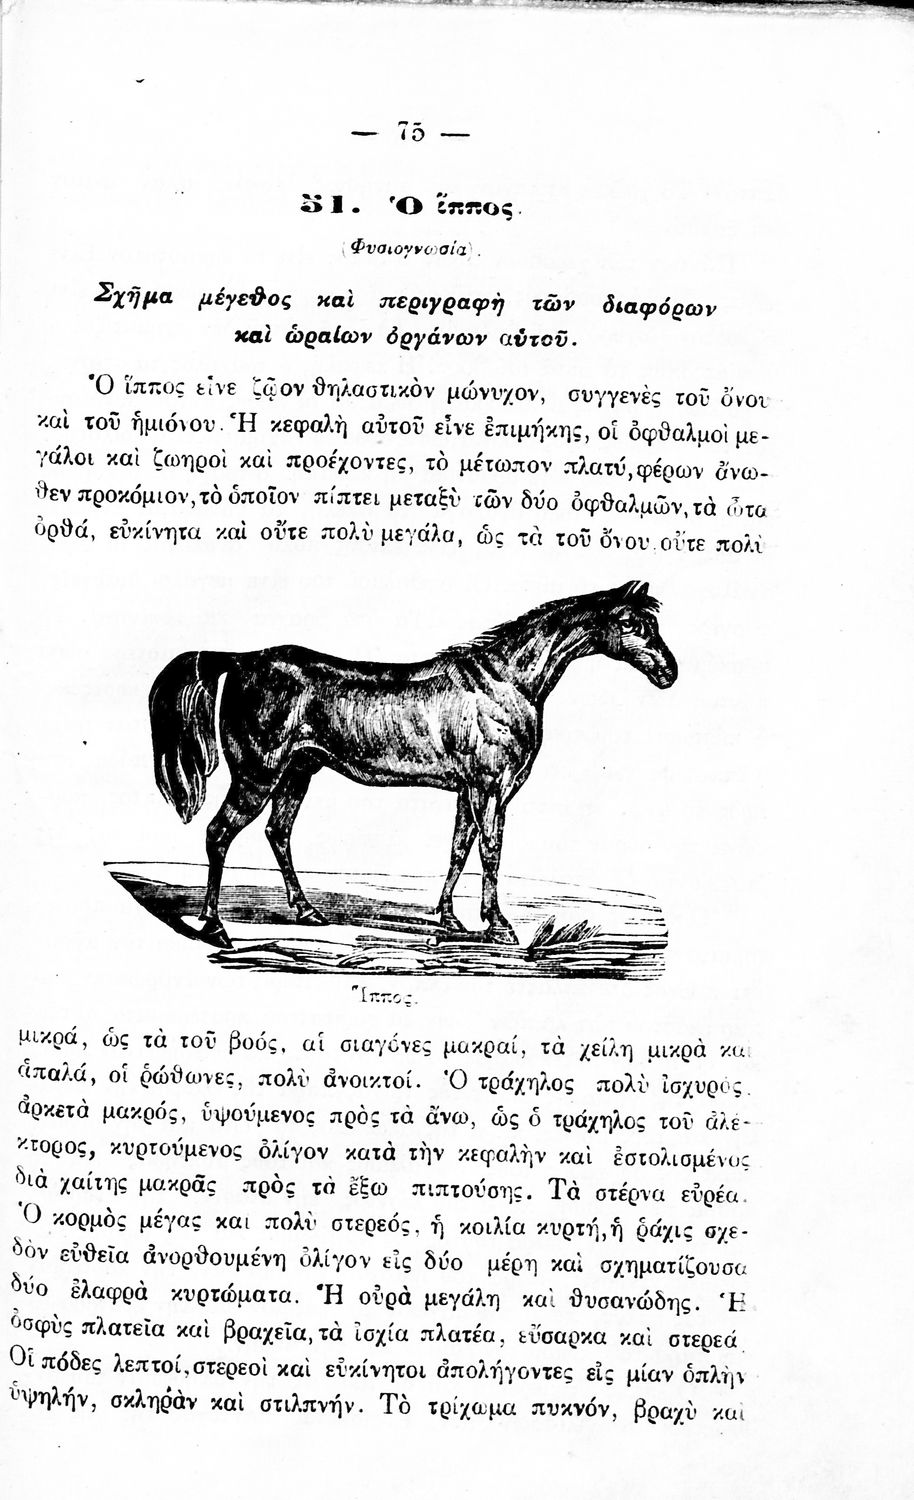 — 75 —
51. Ὁ ἵππος.
(Φυσιογνωσία).
Σχῆμα μέγεθος καὶ περιγραφὴ τῶν διαφόρων
καὶ ὡραίων ὀργάνων αὐτοῦ.
Ὁ ἵππος εἶνε ζῷον θηλαστικὸν μώνυχον, συγγενὲς τοῦ ὄνου
καὶ τοῦ ἡμιόνου. Ἡ κεφαλὴ αὐτοῦ εἶνε ἐπιμήκης, οἱ ὀφθαλμοὶ με-
γάλοι καὶ ζωηροὶ καὶ προέχοντες, τὸ μέτωπον πλατύ, φέρων ἄνω-
θεν προκόμιον, τὸ ὁποῖον πίπτει μεταξὺ τῶν δύο ὀφθαλμῶν, τὰ ὦτα
ὀρθά, εὐκίνητα καὶ οὔτε πολὺ μεγάλα, ὡς τὰ τοῦ ὄνου, οὔτε πολὺ
Ἵππος.
μικρά, ὡς τὰ τοῦ βοός, αἱ σιαγόνες μακραί, τὰ χείλη μικρὰ καὶ
ἁπαλά, οἱ ῥώθωνες, πολὺ ἀνοικτοί. Ὁ τράχηλος πολὺ ἰσχυρὸς,
ἀρκετὰ μακρός, ὑψούμενος πρὸς τὰ ἄνω, ὡς ὁ τράχηλος τοῦ ἀλέ-
κτορος, κυρτούμενος ὀλίγον κατὰ τὴν κεφαλὴν καὶ ἐστολισμένος
διὰ χαίτης μακρᾶς πρὸς τὰ ἔξω πιπτούσης. Τὰ στέρνα εὐρέα.
Ὁ κορμὸς μέγας καὶ πολὺ στερεός, ἡ κοιλία κυρτή, ἡ ῥάχις σχε-
δὸν εὐθεῖα ἀνορθουμένη ὀλίγον εἰς δύο μέρη καὶ σχηματίζουσα
δύο ἐλαφρὰ κυρτώματα. Ἡ οὐρὰ μεγάλη καὶ θυσανώδης. Ἡ
ὀσφὺς πλατεῖα καὶ βραχεῖα, τὰ ἰσχία πλατέα, εὔσαρκα καὶ στερεά.
Οἱ πόδες λεπτοί, στερεοὶ καὶ εὐκίνητοι ἀπολήγοντες εἰς μίαν ὁπλὴν
ὑψηλήν, σκληρὰν καὶ στιλπνήν. Τὸ τρίχωμα πυκνόν, βραχὺ καὶ